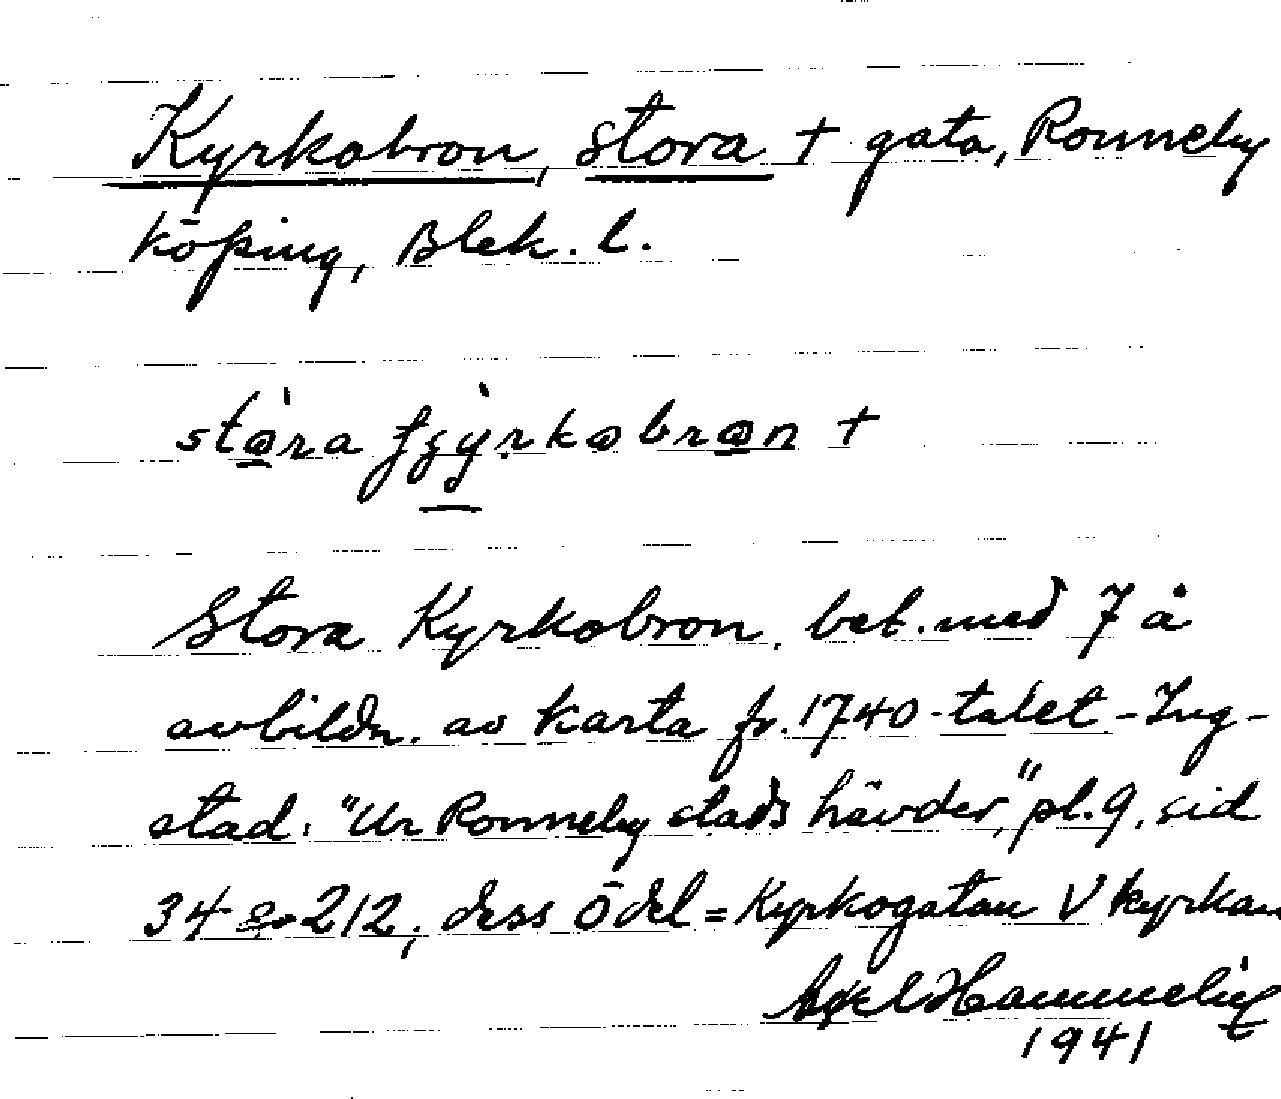 Kyrkobron, Stora † gata, Ronneby
köping, Blek. l.
stora fʒyrkobron †
Stora Kyrkobron, bet. med 7 å
avbildn. av karta fr. 1740-talet - Ing-
stad: "Ur Ronneby stads hävder," pl. 9, sid
34 &amp; 212; dess Ö del = Kyrkogatan V kyrkan
Axel Hammelig
1941